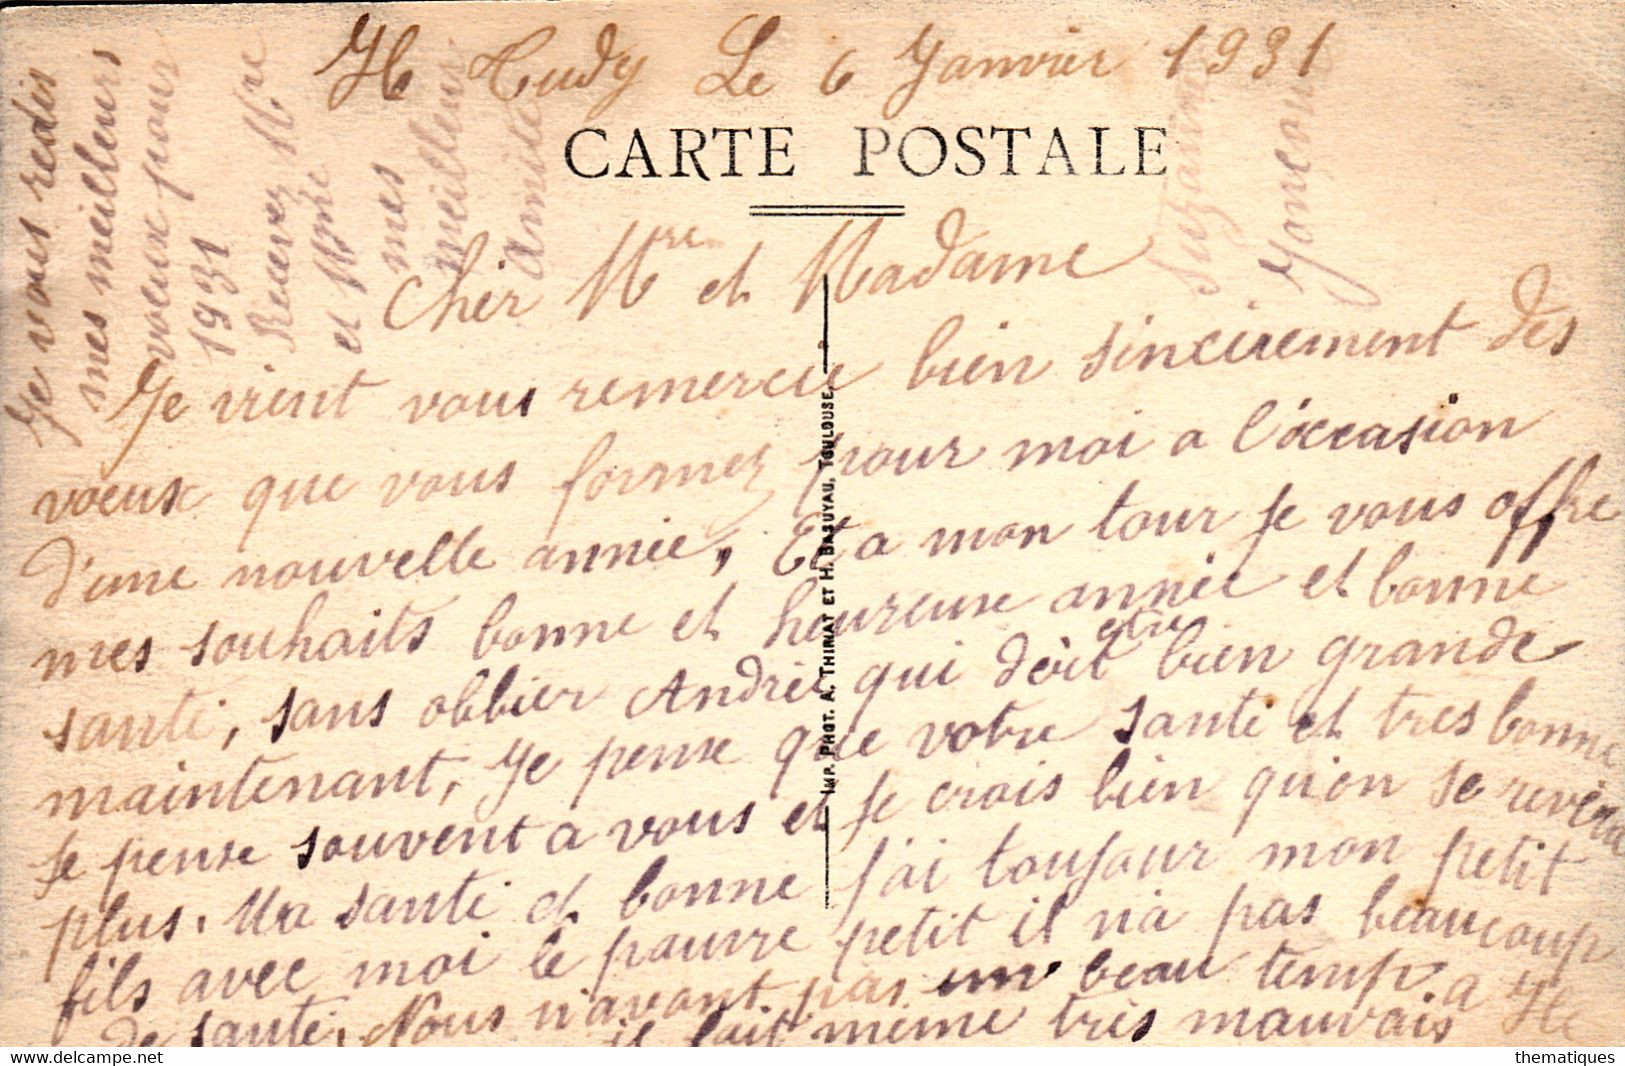 Ile Tudy Le 6 Janvier 1931
CARTE POSTALE
Cher Mre et Madame
Je vient vous remercie bien sincerement des
voeux que vous formez pour moi a l'occasion
d'une nouvelle année, Et a mon tour je vous offre
mes souhaits bonne et heureuse année et bonne
santé, sans obblier André qui doit etre bien grande
maintenant, je pense que votre santé et tres bonne
je pense souvent a vous et je crois bien qu'on se
plus. Ma santé et bonne j'ai toujour mon petit
fils avec moi le pauvre petit il n'a pas beaucoup
de santé. Nous n'avont pas un beau temp a Ile
il fait même très mauvais
Je vous redis
mes meilleurs
voeux pour
1931
Recevez Mre
et Mme
mes
meilleur
Amitié
Suzanne
IMP. PHOT. A. THIRIAT ET H. BASUYAU, TOULOUSE.
thematiques